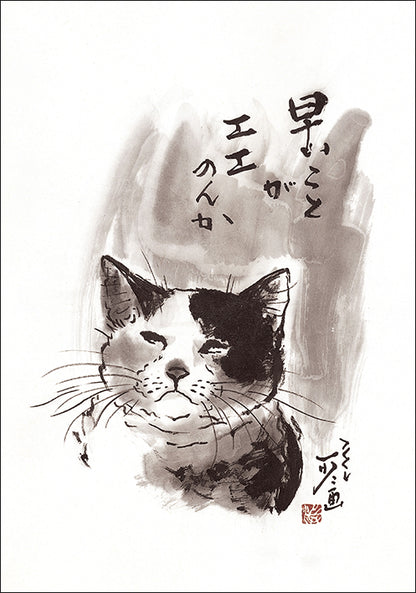 早いことが
エエ
のんか